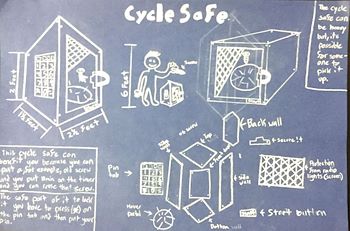 Cycle Safe
The cycle
safe can
be heavy
but, its
possible
for some-
one to
pick it
up.
2 feet
1½ feet
2½ feet
6 feet
Screw
This cycle safe can
benefit you because you can
put a for example, old screw
and you put 8min on the timer
and you can reuse that screw.
The safe part of it to hold
is you have to
the pin tab and then put your
pin.
Back wall
Top
Pin
tab
Side
wall
Secure it
Protection
from
lights
Hover
pedal
Bottom wall
Start button